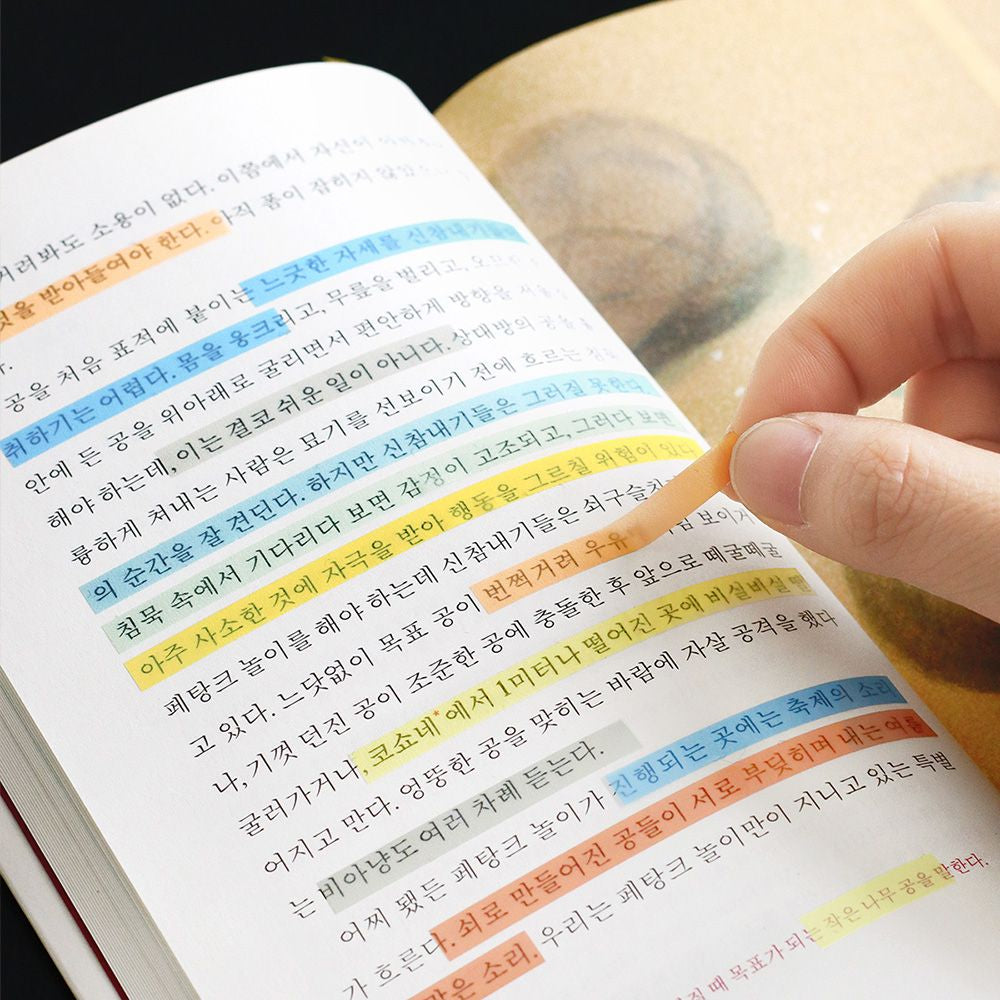 소용이 없다. 이쯤에서 자신이
것을 받아들여야 한다. 아직 폼이 잡히지
공을 처음 표적에 붙이는 느긋한 자세를 신참내기들
취하기는 어렵다. 몸을 웅크리고, 무릎을 벌리고,
안에 든 공을 위아래로 굴리면서 편안하게 방향을
해야 하는데, 이는 결코 쉬운 일이 아니다. 상대방의 공을
륭하게 쳐내는 사람은 묘기를 선보이기 전에 흐르는
의 순간을 잘 견딘다. 하지만 신참내기들은 그러질 못한다.
침묵 속에서 기다리다 보면 감정이 고조되고, 그러다 보면
아주 사소한 것에 자극을 받아 행동을 그르칠 위험이 있다
페탕크 놀이를 해야 하는데 신참내기들은 쇠구슬치
고 있다. 느닷없이 목표 공이 번쩍거려 우유 보이거
나, 기껏 던진 공이 조준한 공에 충돌한 후 앞으로 떼굴떼굴
굴러가거나, 코쇼네*에서 1미터나 떨어진 곳에 비실비실 떨
어지고 만다. 엉뚱한 공을 맞히는 바람에 자살 공격을 했다
는 비아냥도 여러 차례 듣는다.
어찌 됐든 페탕크 놀이가 진행되는 곳에는 축제의 소리
가 흐른다. 쇠로 만들어진 공들이 서로 부딪히며 내는 여름
같은 소리. 우리는 페탕크 놀이만이 지니고 있는 특별
때 목표가 되는 작은 나무 공을 말한다.